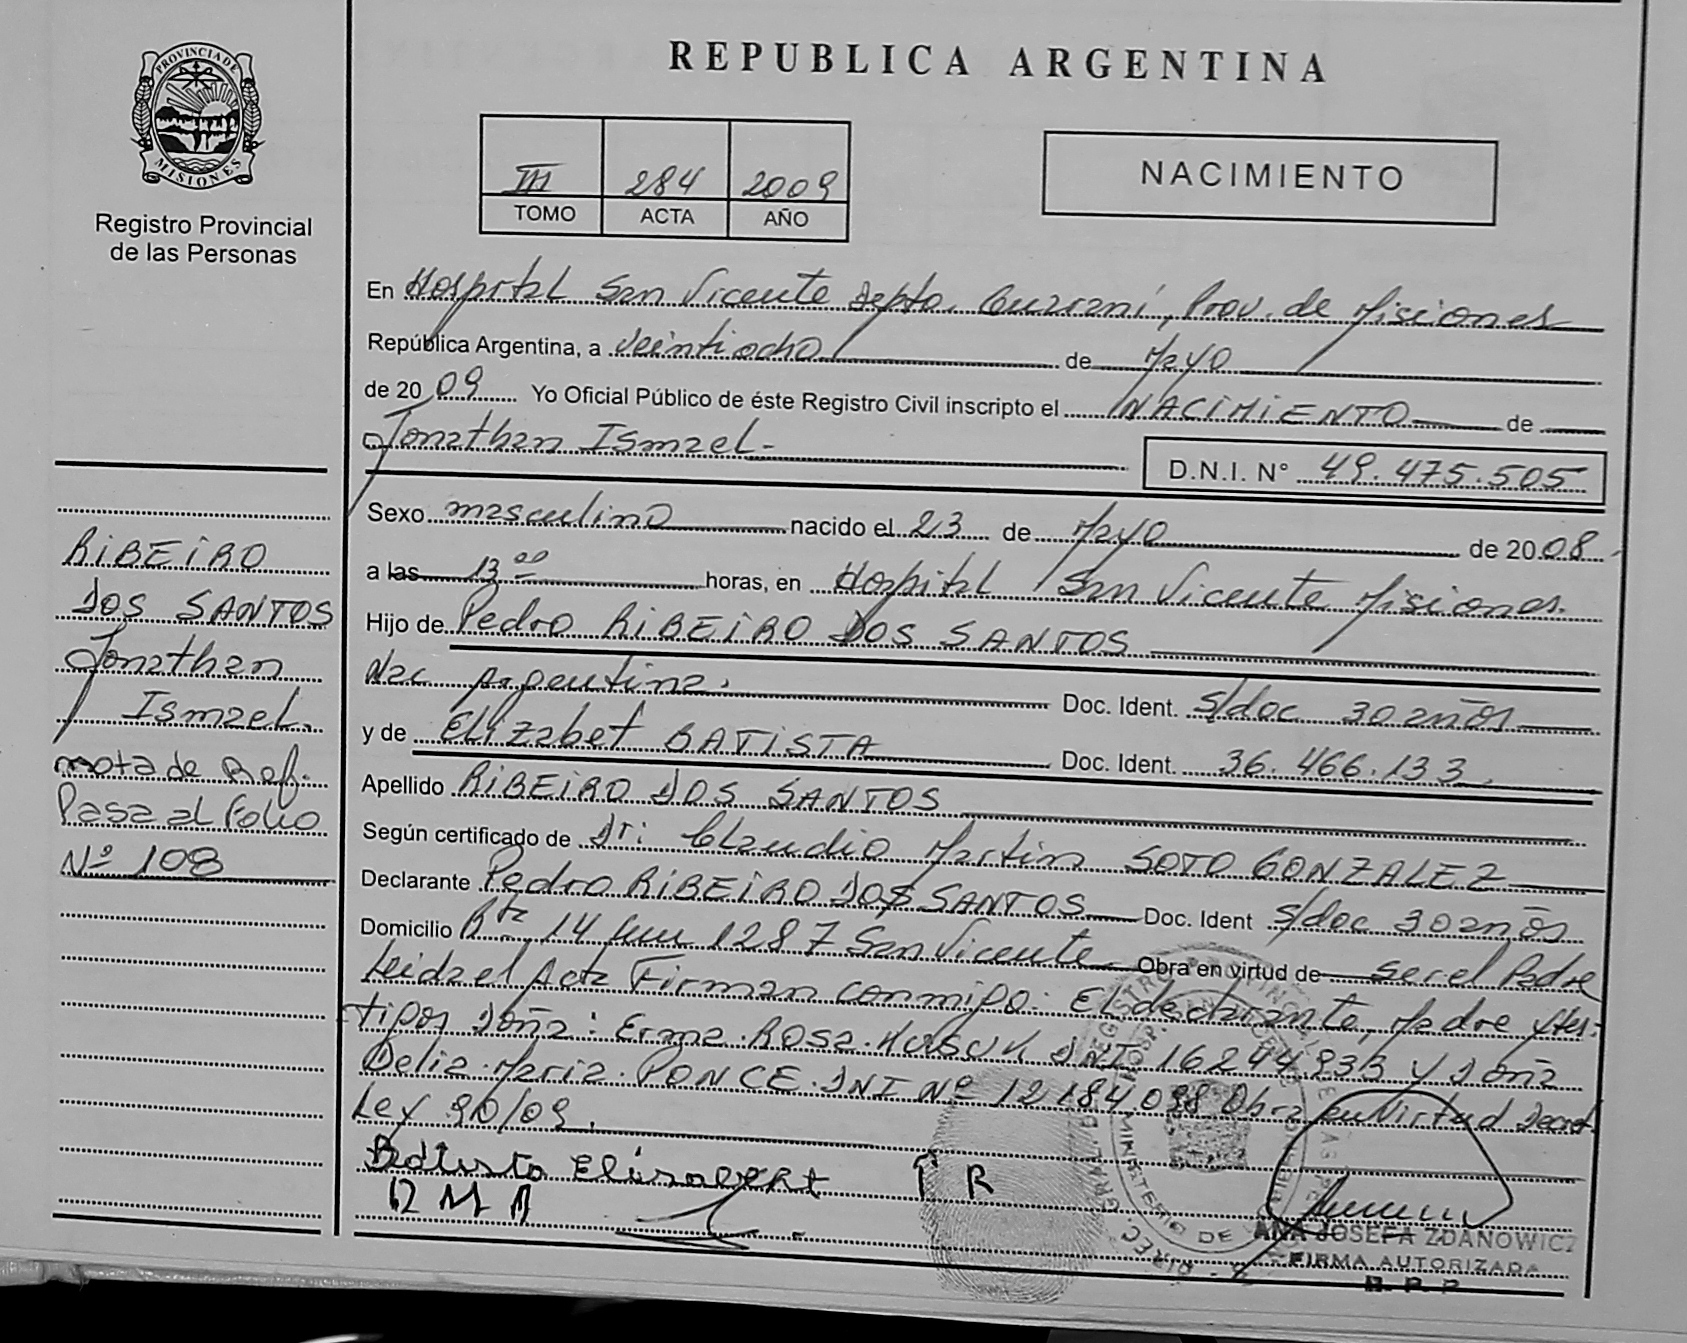 REPUBLICA ARGENTINA
PROVINCIA DE
MISIONES
Registro Provincial
de las Personas
III 284 2009
TOMO ACTA AÑO
NACIMIENTO
En Hospital San Vicente Depto. Guaraní, Prov. de Misiones
República Argentina, a veintiocho de Mayo
de 2009 Yo Oficial Público de éste Registro Civil inscripto el NACIMIENTO de
Jonathan Ismael.-
D.N.I. N° 49.475.505
Sexo masculino nacido el 23 de Mayo de 2008
a las 13 00 horas, en Hospital San Vicente Misiones.
Hijo de Pedro RIBEIRO DOS SANTOS
Nac Argentina. Doc. Ident. s/doc 30 años
y de Elizabet BATISTA Doc. Ident. 36.466.133.
Apellido RIBEIRO DOS SANTOS
Según certificado de Dr: Claudio Martin SOTO GONZALEZ
Declarante Pedro RIBEIRO DOS SANTOS Doc. Ident s/doc 30 años
Domicilio Rta 14 km 1287 San Vicente Obra en virtud de ser el Padre
Leida el Acta Firman conmigo: El declarante, Madre y tes-
tigos Doña: Erma Rosa DNI 16244933 y Doña
Delia Maria PONCE DNI Nº 12184098 Obra en Virtud Decret.
Ley 90/09.
Batista Elisabert
P R
ANA JOSEFA ZDANOWICZ
FIRMA AUTORIZADA
R. P. P.
RIBEIRO
DOS SANTOS
Jonathan
Ismael.
nota de Ref.
Pasa al Folio
Nº 108